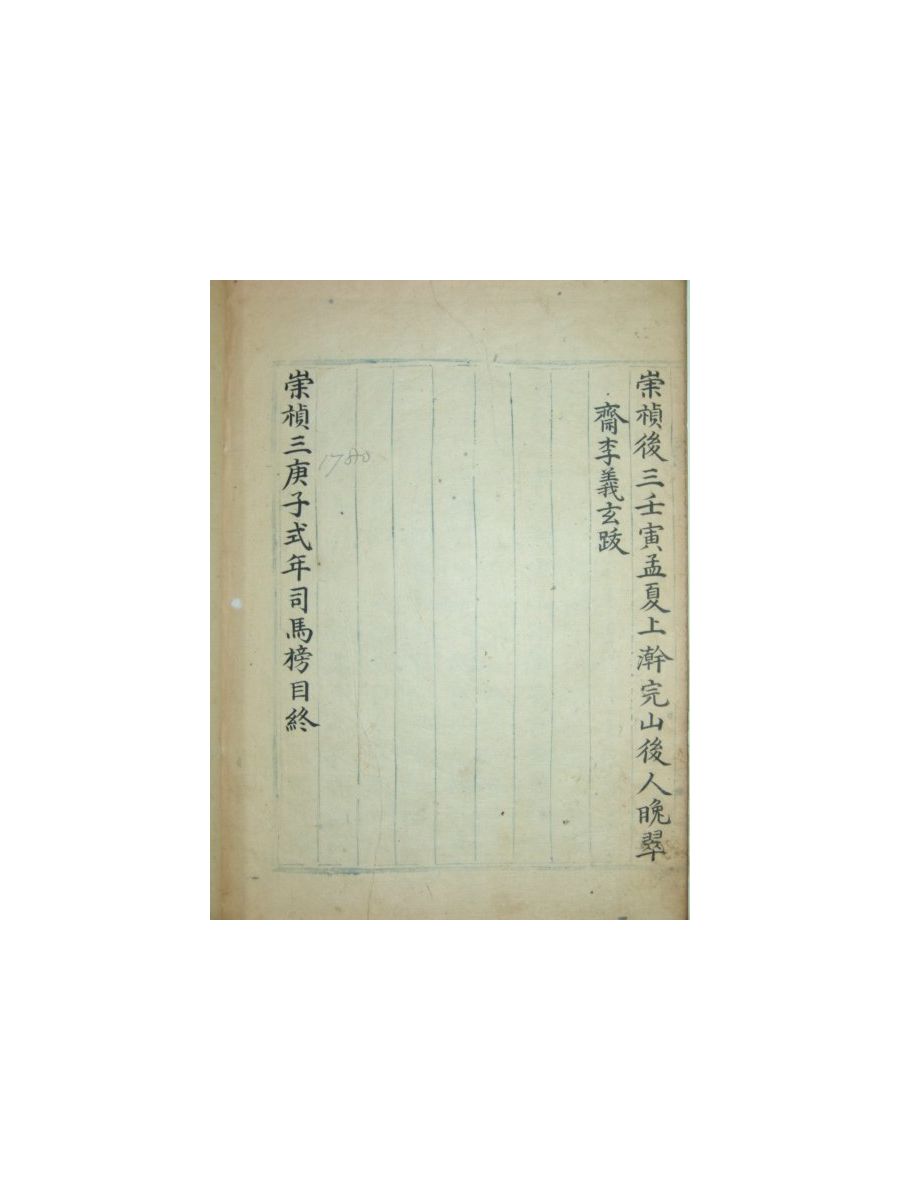 崇禎後三壬寅孟夏上澣完山後人晩翠
齋李義玄跋
1780
崇禎三庚子式年司馬榜目終